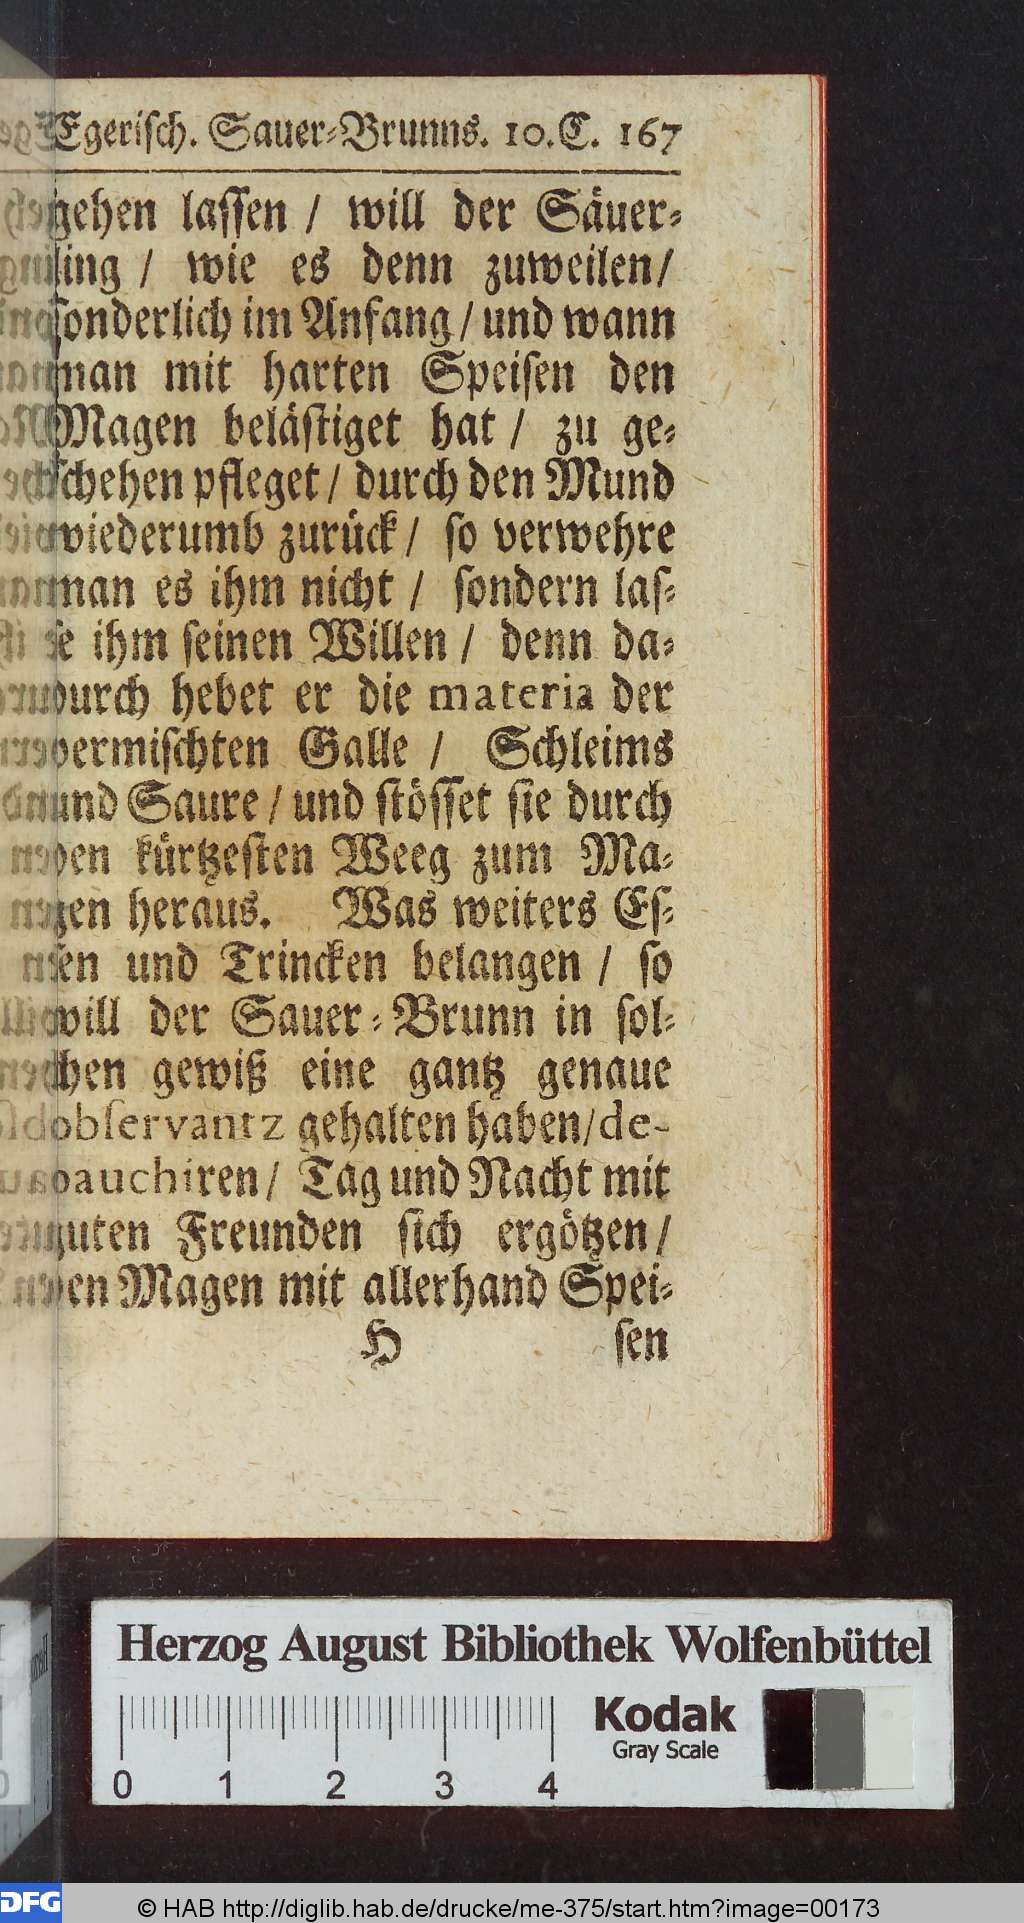 Egerisch. Sauer-Brunns. 10. C. 167
gehen lassen / will der Säuer-
ling / wie es denn zuweilen /
sonderlich im Anfang / und wann
man mit harten Speisen den
Magen belästiget hat / zu ge-
schehen pfleget / durch den Mund
wiederumb zurück / so verwehre
man es ihm nicht / sondern las-
se ihm seinen Willen / denn da-
durch hebet er die materia der
vermischten Galle / Schleims
und Saure / und stösset sie durch
den kürtzesten Weeg zum Ma-
gen heraus. Was weiters Es-
sen und Trincken belangen / so
will der Sauer-Brunn in sol-
chen gewiß eine gantz genaue
observantz gehalten haben / de-
bauchiren / Tag und Nacht mit
guten Freunden sich ergötzen /
den Magen mit allerhand Spei-
H sen
Herzog August Bibliothek Wolfenbüttel
Kodak
Gray Scale
0 1 2 3 4
DFG © HAB http://diglib.hab.de/drucke/me-375/start.htm?image=00173